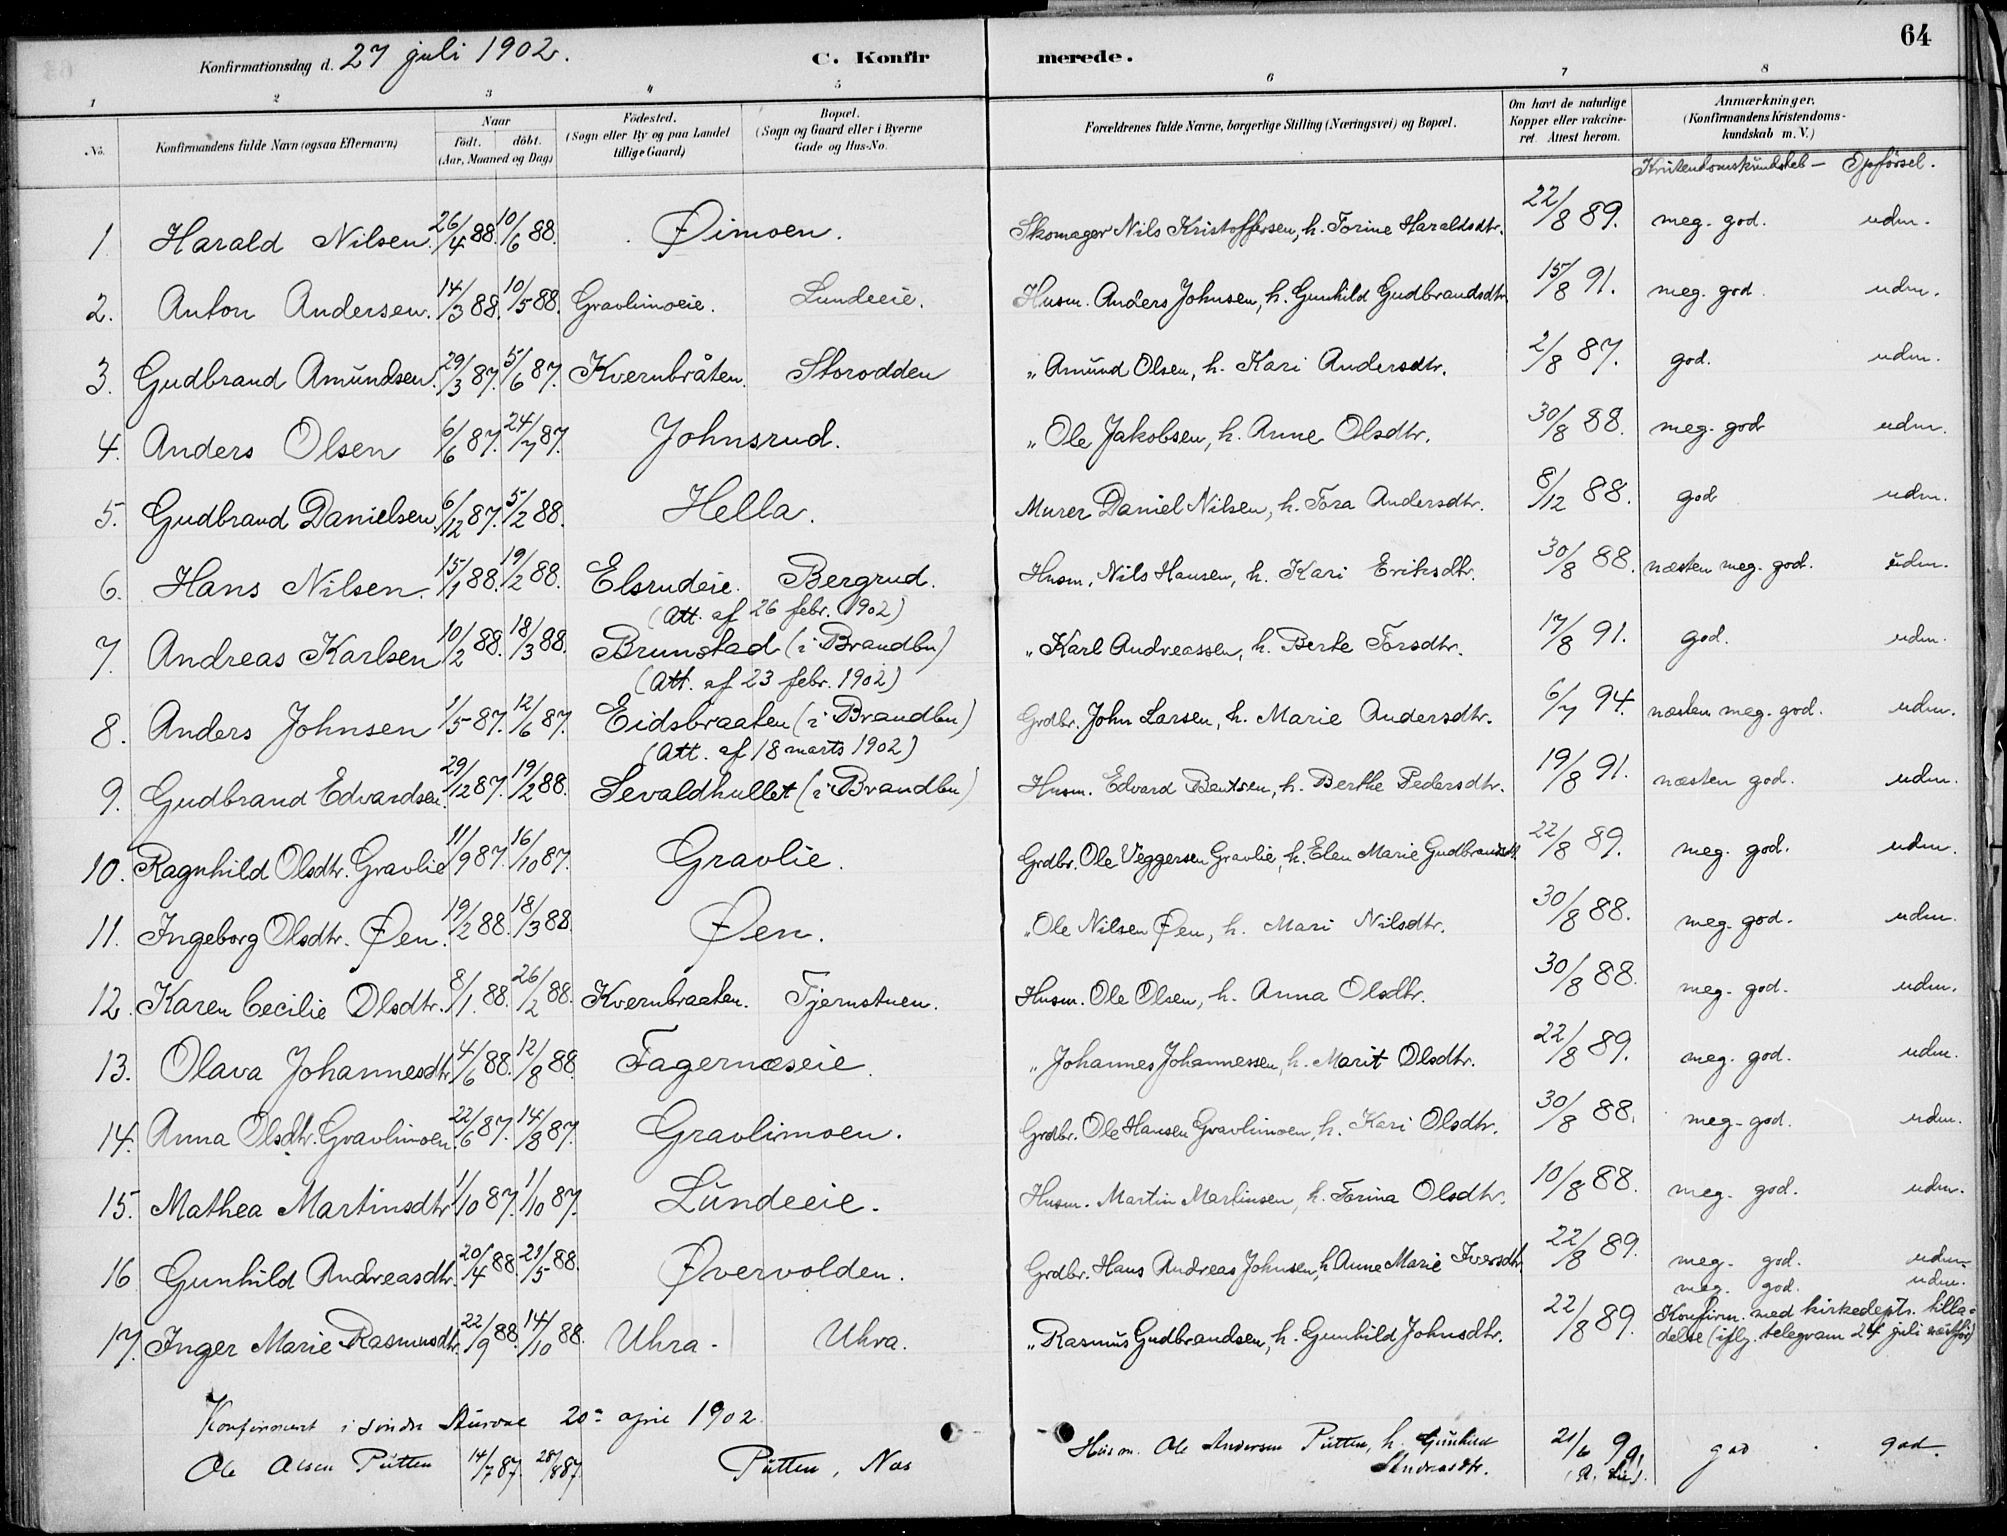 64
Konfirmationsdag d. 27 juli 1902. C. Konfirmerede.
1 2 3 4 5 6 7 8
No. Konfirmandens fulde Navn (ogsaa Efternavn) Naar födt. döbt. (Aar, Maaned og Dag) Födested. (Sogn eller By og paa Landet tillige Gaard) Bopæl. (Sogn og Gaard eller i Byerne Gade og Hus-No. Forældrenes fulde Navne, borgerlige Stilling (Næringsvei) og Bopæl. Om havt de naturlige Kopper eller vakcineret. Attest herom. Anmærkninger. (Konfirmandens Kristendomskundskab m. V.)
Kristendomskundskab – Opførsel.
1 Harald Nilsen. 26/4 88. 10/6 88. Øimoen. Skomager Nils Kristoffersen, h. Torine Haraldsdtr. 22/8 89. meg. god. udm.
2. Anton Andersen. 14/3 88. 10/5 88. Gravlimoeie. Lundeeie. Husm. Anders Johnsen, h. Gunhild Gudbrandsdtr. 15/8 91. meg. god. udm.
3. Gudbrand Amundsen. 29/3 87. 5/6 87. Kvernbråten. Skorodden „ Amund Olsen, h. Kari Andersdtr. 2/8 87. god. udm.
4. Anders Olsen 6/6 87. 24/7 87. Johnsrud. „ Ole Jakobsen, h. Anne Olsdtr. 30/8 88. meg. god udm.
5. Gudbrand Danielsen. 6/12 87. 5/2 88. Hella. Murer Daniel Nilsen, h. Tora Andersdtr. 8/12 88. god udm.
6. Hans Nilsen. 15/1 88. 19/2 88. Elsrudeie. Bergrud. Husm. Nils Hansen, h. Kari Eriksdtr. 30/8 88. næsten meg. god. udm.
(Att. af 26 febr. 1902)
7. Andreas Karlsen 10/2 88. 18/3 88. Brunstad (i Brandbu) „ Karl Andreassen, h. Berte Torsdtr. 17/8 91. god. udm.
(Att. af 23 febr. 1902)
8. Anders Johnsen 1/5 87. 12/6 87. Eidsbraaten (i Brandbu) Grdbr. John Larsen, h. Marie Andersdtr. 6/7 94. næsten meg. god. udm.
(Att. af 18 marts 1902)
9. Gudbrand Edvardsen. 29/12 87. 19/2 88. Sevaldhullet (i Brandbu) Husm. Edvard Bentsen, h. Berthe Pedersdtr. 19/8 91. næsten god. udm.
10. Ragnhild Olsdtr. Gravlie 11/9 87. 16/10 87. Gravlie. Grdbr. Ole Veggersen Gravlie, h. Elen Marie Gudbrandsdt. 22/8 89. meg. god. udm.
11. Ingeborg Olsdtr. Øen. 19/2 88. 18/3 88. Øen. „ Ole Nilsen Øen, h. Mari Nilsdtr. 30/8 88. meg. god. udm.
12. Karen Cecilie Olsdtr. 8/1. 88. 26/2 88. Kvernbraaten. Tjernstuen. Husm. Ole Olsen, h. Anna Olsdtr. 30/8 88. meg. god. udm.
13. Olava Johannesdtr. 4/6 88. 12/8 88. Fagernæseie. „ Johannes Johannessen, h. Marit Olsdtr. 22/8 89. meg. god. udm.
14. Anna Olsdtr. Gravlimoen. 22/6 87. 14/8 87. Gravlimoen. Grdbr. Ole Hansen Gravlimoen, h. Kari Olsdtr. 30/8 88. meg. god. udm.
15. Mathea Martinsdtr 1/10 87. 1/10 87. Lundeeie. Husm. Martin Martinsen, h. Torina Olsdtr. 10/8 88. meg. god. udm.
16 Gunhild Andreasdtr. 20/4 88. 21/5 88. Øvervolden. Grdbr. Hans Andreas Johnsen, h. Anne Marie Iversdtr. 22/8 89. meg. god. udm.
meg. god. udm.
17. Inger Marie Rasmusdtr. 22/9 88. 14/10 88. Uhra. Uhra. „ Rasmus Gudbrandsen, h. Gunhild Johnsdtr. 22/8 89. Konfirm. med kirkedepts. tilladelse (iflg. telegram 24 juli
Konfirmert i søndre 20de april 1902.
Ole Olsen Putten 14/7 87. 28/8 87. Putten, Nes Husm. Ole Andersen Putten, h. Gunhild Andreasdtr. 21/6 99. god god.